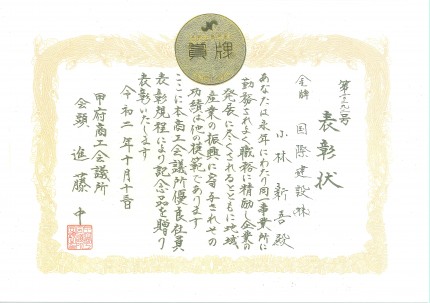 賞牌
第一三九号
表彰状
金牌
国際建設㈱
小林新吾殿
あなたは永年にわたり同一事業所に
勤務されよく職務に精励し企業の
発展に尽くされるとともに地域
産業の振興に寄与されその
功績は他の模範であります
ここに本商工会議所優良社員
表彰規程により記念品を贈り
表彰いたします
令和二年十月十二日
甲府商工会議所
会頭 進藤中